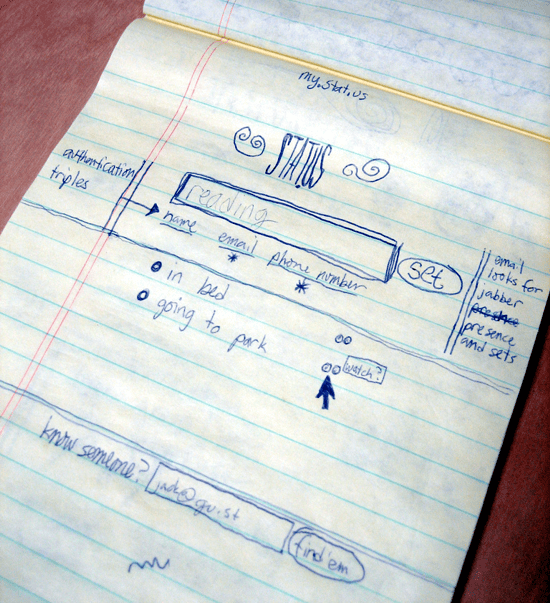 my.stat.us
STAT.US
authentication
triples
reading
name email phone number
* *
set
email
looks for
jabber
presence
and sets
in bed
going to park
watch?
know someone?
find'em